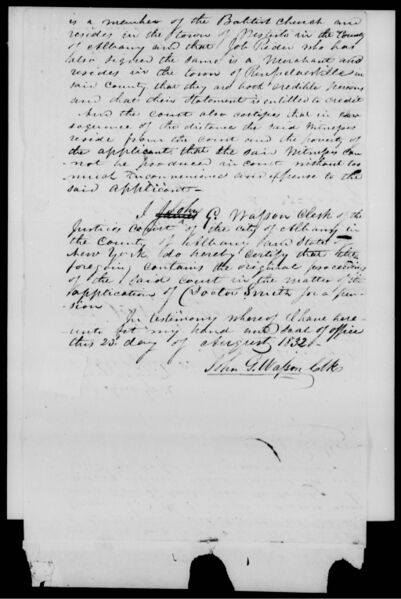 is a member of the Babtist Church and
resides in the town of Westerlo in the County
of Albany and that Job Rider who has
also signed the same is a Merchant and
resides in the town of Renselaerville in
said County that they are both credible persons
and that their statement is entitled to credit
And the court also certifies that in con
sequence of the distance the said Witnesses
reside from the court and the poverty of
the applicant that the said Witnesses can
not be produced in court without too
much inconvenience and expense to the
said applicant —
I John G. Wasson Clerk of the
Justices Court of the city of Albany in
the County of Albany and State of
New York do hereby certify that the
foregoing contains the original proceedings
of the said court in the matter of the
application of Doctor Smith for a pen
sion
In testimony whereof I have here
unto set my hand and seal of office
this 23 day of August 1832 —
John G. Wasson Clk